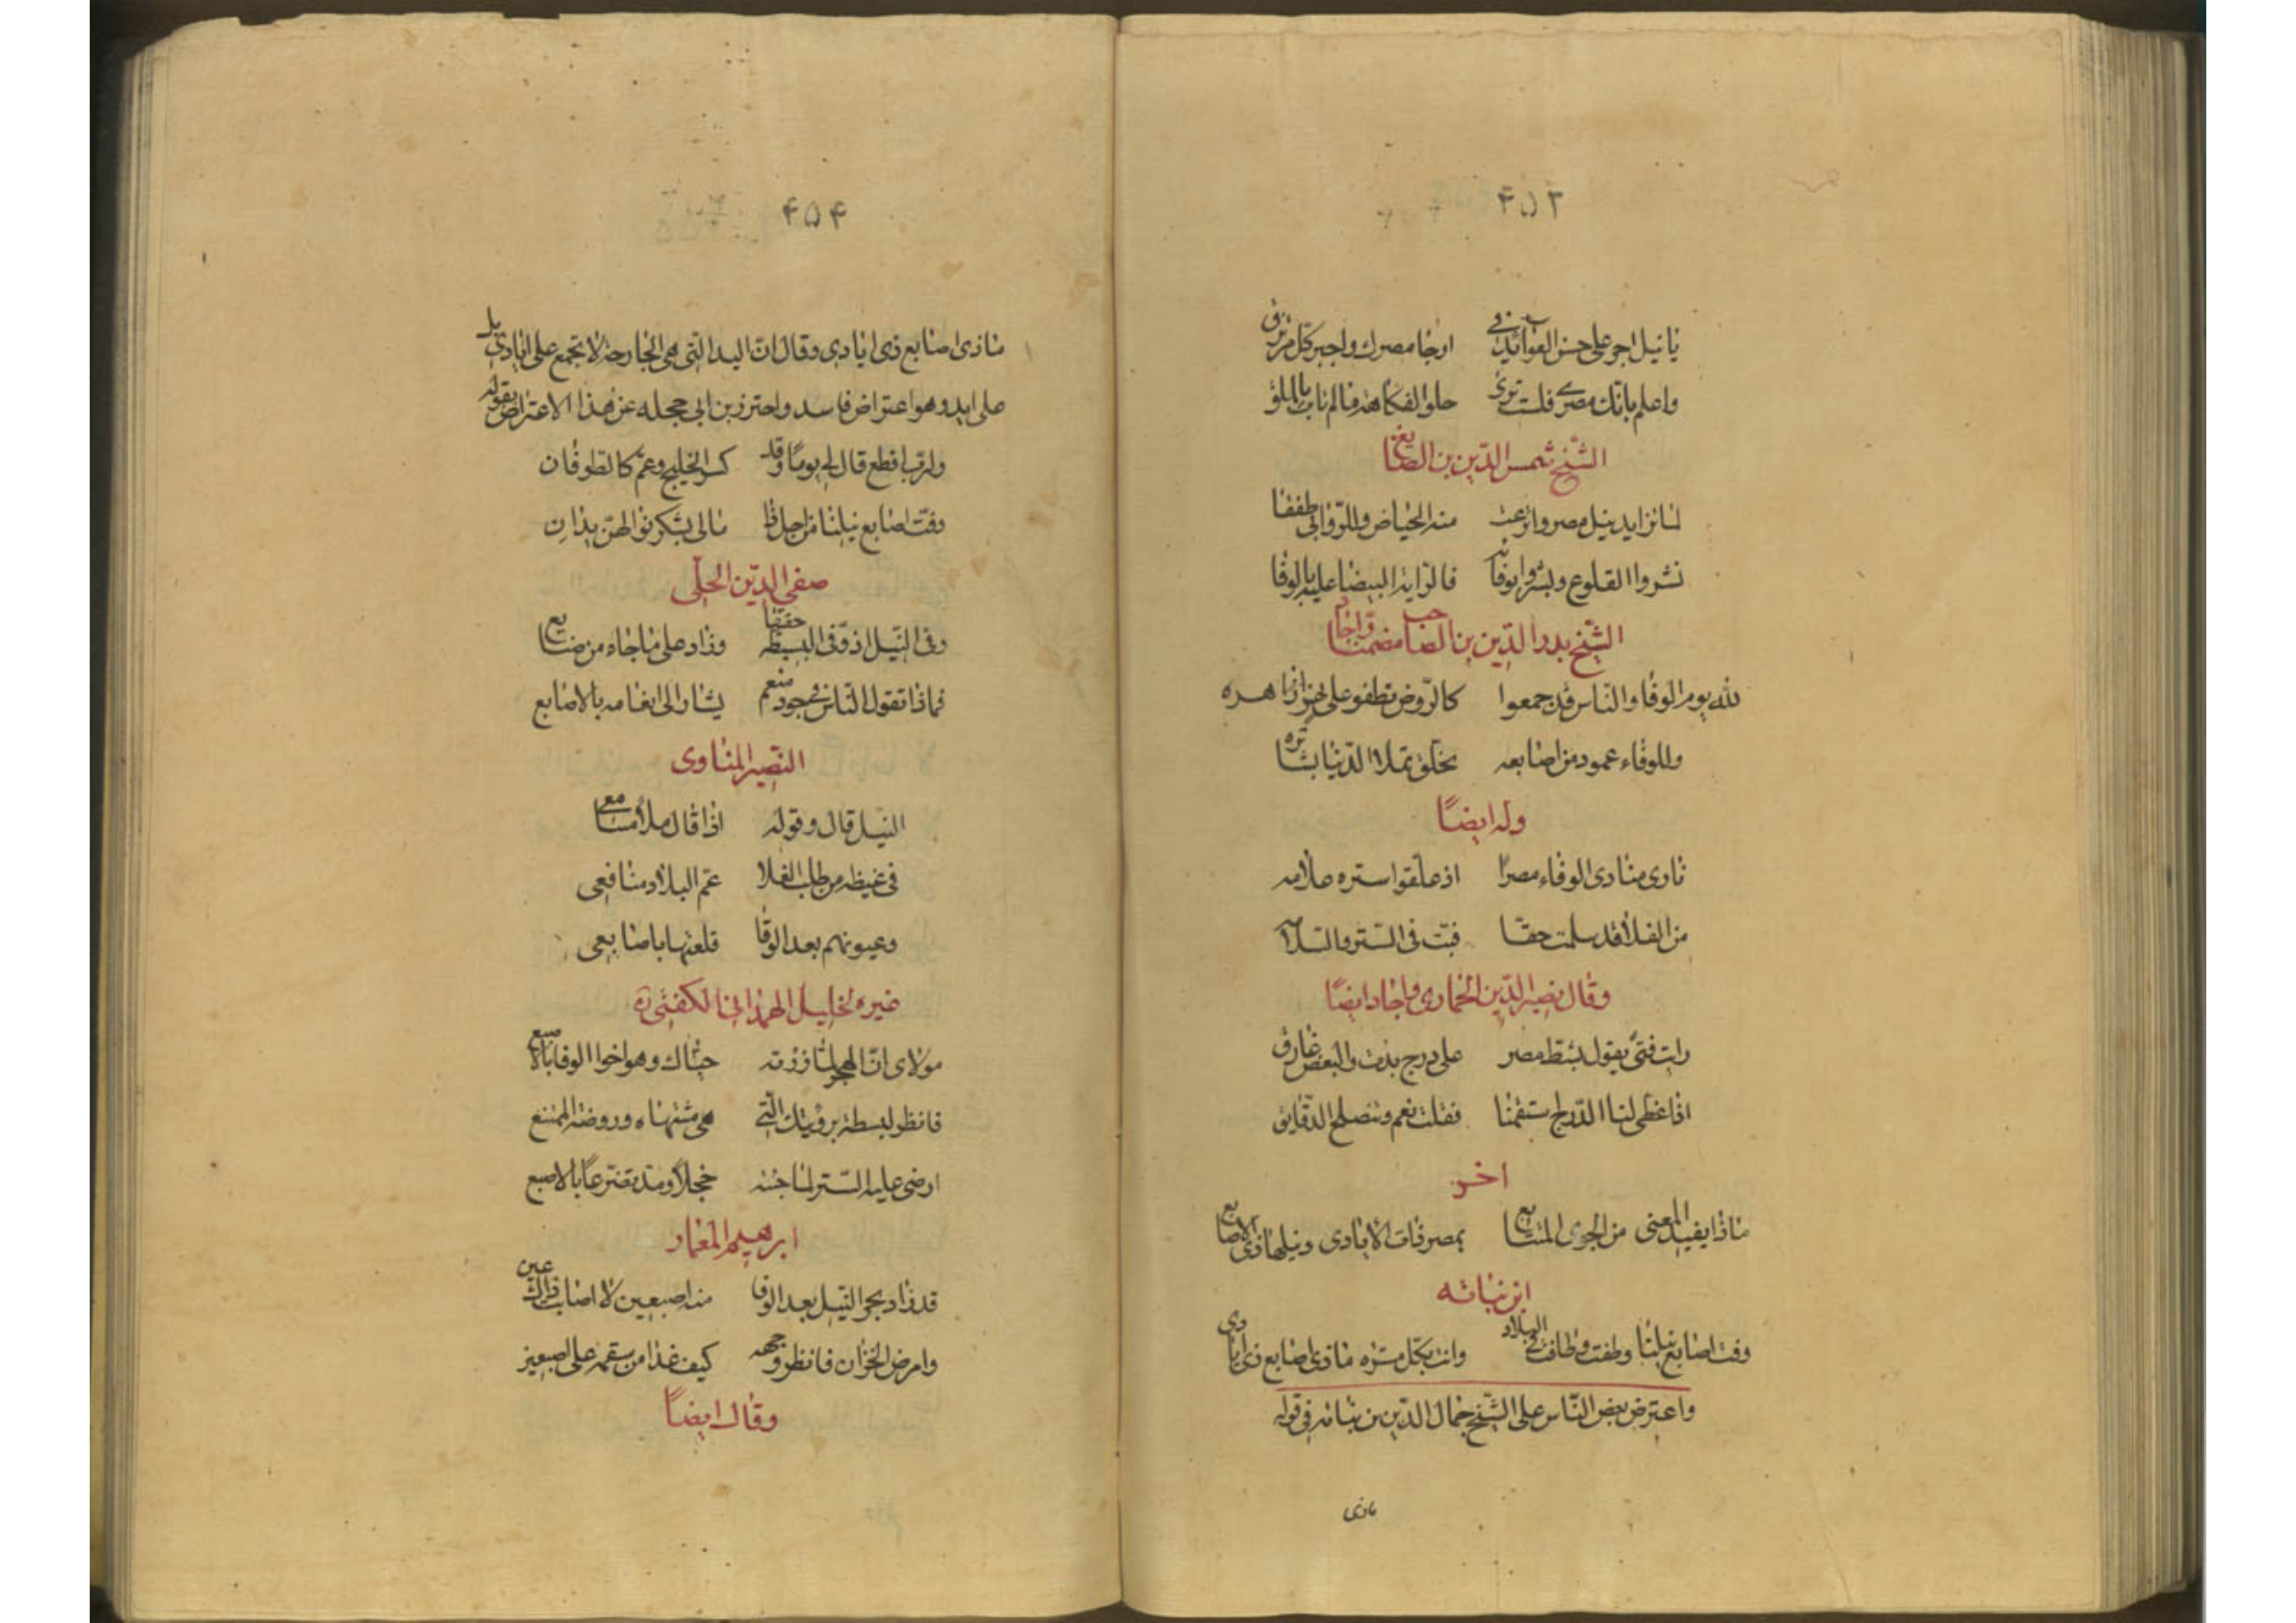 ۴۵۳
يا نيل اجر على حسن العوائد في ارجا مصرك واجبر كل مرتزق
واعلم بانك مصري فلست ترى حلو الفكاهة ما لم تاب بالملق
الشيخ شمس الدين بن الصايغ
لما تزايد نيل مصر واترعت منه الحياض وللروابى طففا
نشروا القلوع وبشروا بوفائه فالراية البيضا عليه بالوفا
الشيخ بدر الدين بن الصاحب مضمنا واجاد
لله يوم الوفا والناس قد جمعوا كالروض تطفو على نهر ازاهره
وللوفاء عمود من اصابعه مخلق تملا الدنيا بشائره
وله ايضًا
نادى منادى الوفاء مصرًا اذ علقوا ستره علامه
من الغلا قد سلمت حقا فبت في الستر والسلامه
وقال نصير الدين الحمامى واجاد ايضًا
رايت فتى يقول بشط مصر على درج بدت والبعض غارق
اذا غطى لنا الدرج استقمنا فقلت نعم وتنصلح الدقايق
اخر
ماذا يفيد المعنى من الجوى المتتابع بمصر ذات الايادى ونيلها ذى الاصابع
ابن نباته
وفت اصابع نيلنا وطفت وطافت في البلاد وانت بكل مسره ما ذى اصابع ذى ايادى
واعترض بعض الناس على الشيخ جمال الدين بن نباته في قوله
ماذى
۴۵۴
ما ذى اصابع ذى ايادى وقال ان اليد التى هى الجارحة لا تجمع على ايادى بل
على ايد وهو اعتراض فاسد واحترز بن ابي حجله عن هذا الاعتراض بقوله
ولرب اقطع قال لى يومًا وقد كسر الخليج وعم كالطوفان
وفت اصابع نيلنا من اجل ذا مالى بشكر نوالهن يدان
صفى الدين الحلى
وفى النيل اذ وفى البسيطة حقها وزاد على ما جاءه من صنايع
فماذا تقول الناس في جود منعم يشار الى انعامه بالاصابع
النصير المناوى
النيل قال وقوله اذا قال ملأ مسامعى
فى غيظه من طلب الغلا عم البلاد منافعى
وعيونهم بعد الوفا قلعتها باصابعى
غيره لخليل الهمدانى الكفتى ره
مولاى ان البحر لما زرته حياك وهو اخوا الوفا بالاصبع
فانظر لبسطة برؤيتك التى هى مشتهاه وروضة المتمتع
ارخى عليه الستر لما جئته خجلاً ومد تضرعًا بالاصبع
ابرهيم المعمار
قد زاد بحر النيل بعد الوفا منه اصبعين لا اصابت ذاك عين
وامرض الخزان فانظر وجهه كيف غدا من سقمه على اصبعين
وقال ايضاً